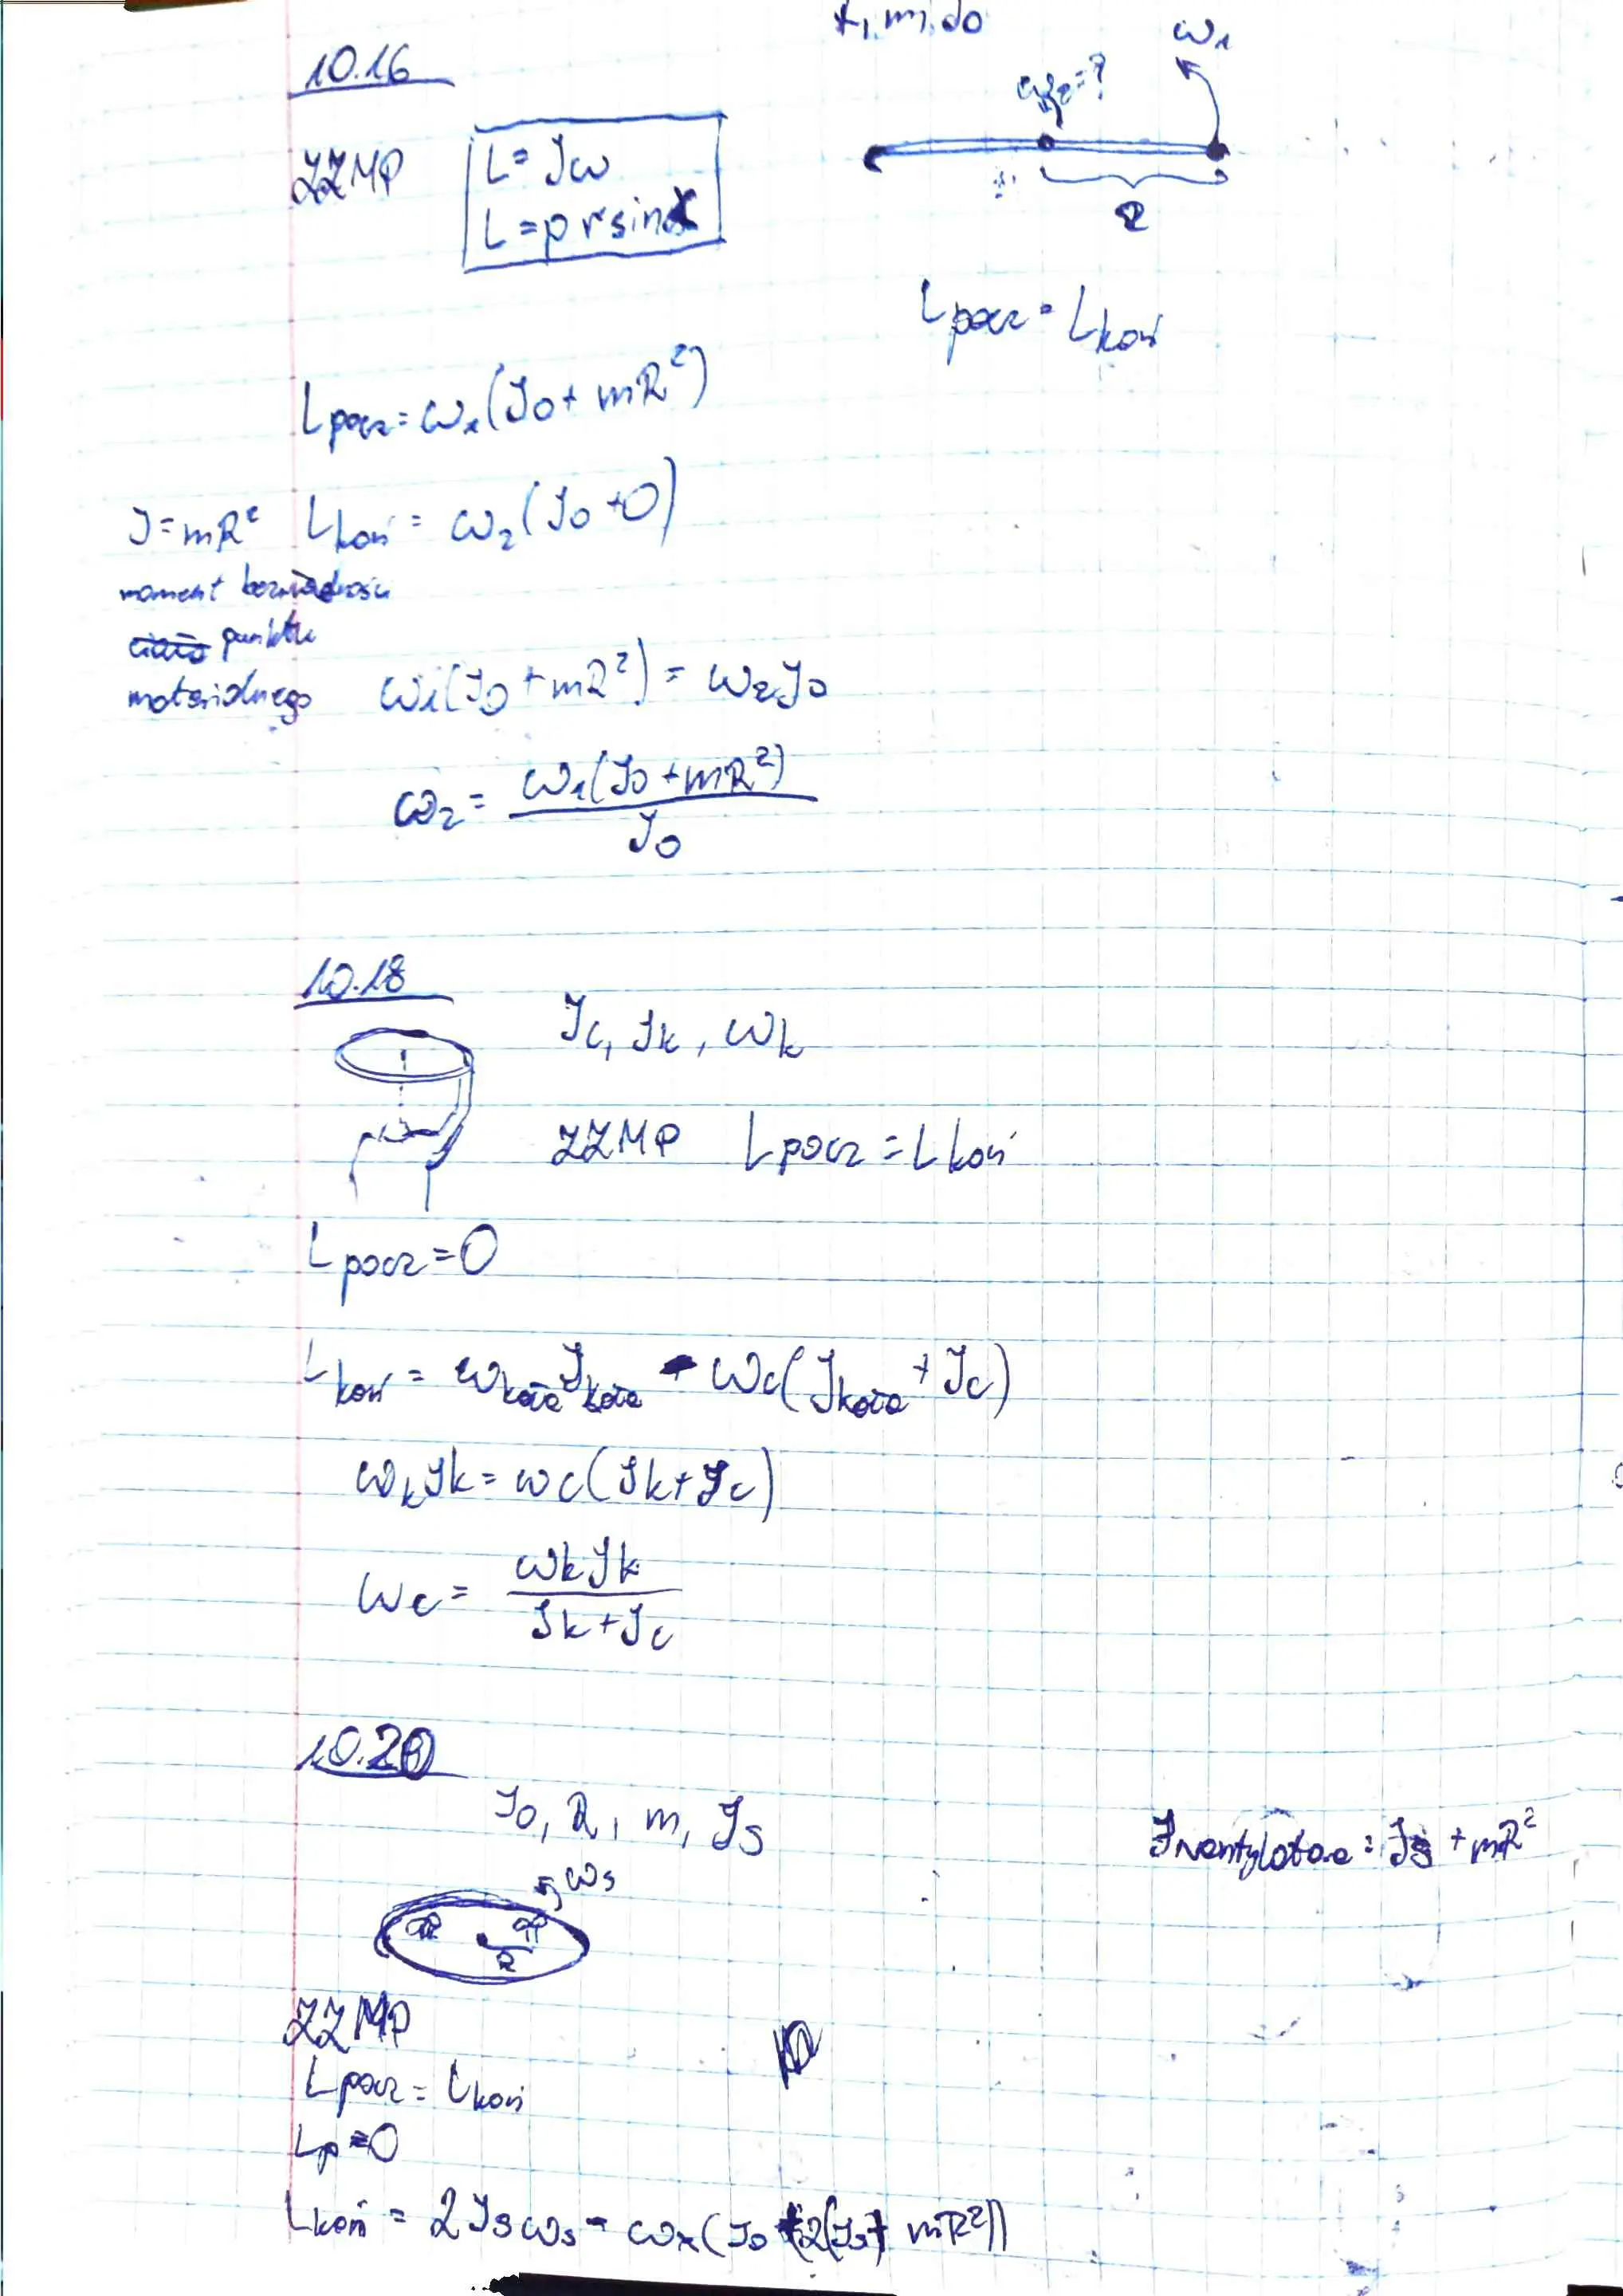 10.16
r, m, J0
ω1
ω2=?
ZZMP
L=Jω
L=prsinα
R
Lpocz = Lkoń
Lpocz = ω1(J0 + mR²)
J=mR² Lkoń = ω2(J0+0)
moment bezwładności
punktu
materialnego
ω1(J0 + mR²) = ω2J0
ω2 = ω1(J0 + mR²) / J0
10.18
Jc, Jk, ωk
ZZMP Lpocz = Lkoń
Lpocz = 0
Lkoń = ωkoła Jkoła - ωc(Jkoła + Jc)
ωkJk = ωc(Jk+Jc)
ωc = ωkJk / Jk+Jc
10.20
J0, R, m, Js
Jwentylatora = Js + mR²
ωs
R
ZZMP
Lpocz = Lkoń
Lp=0
Lkoń = 2Jsωs - ωx(J0+2(Js+mR²))